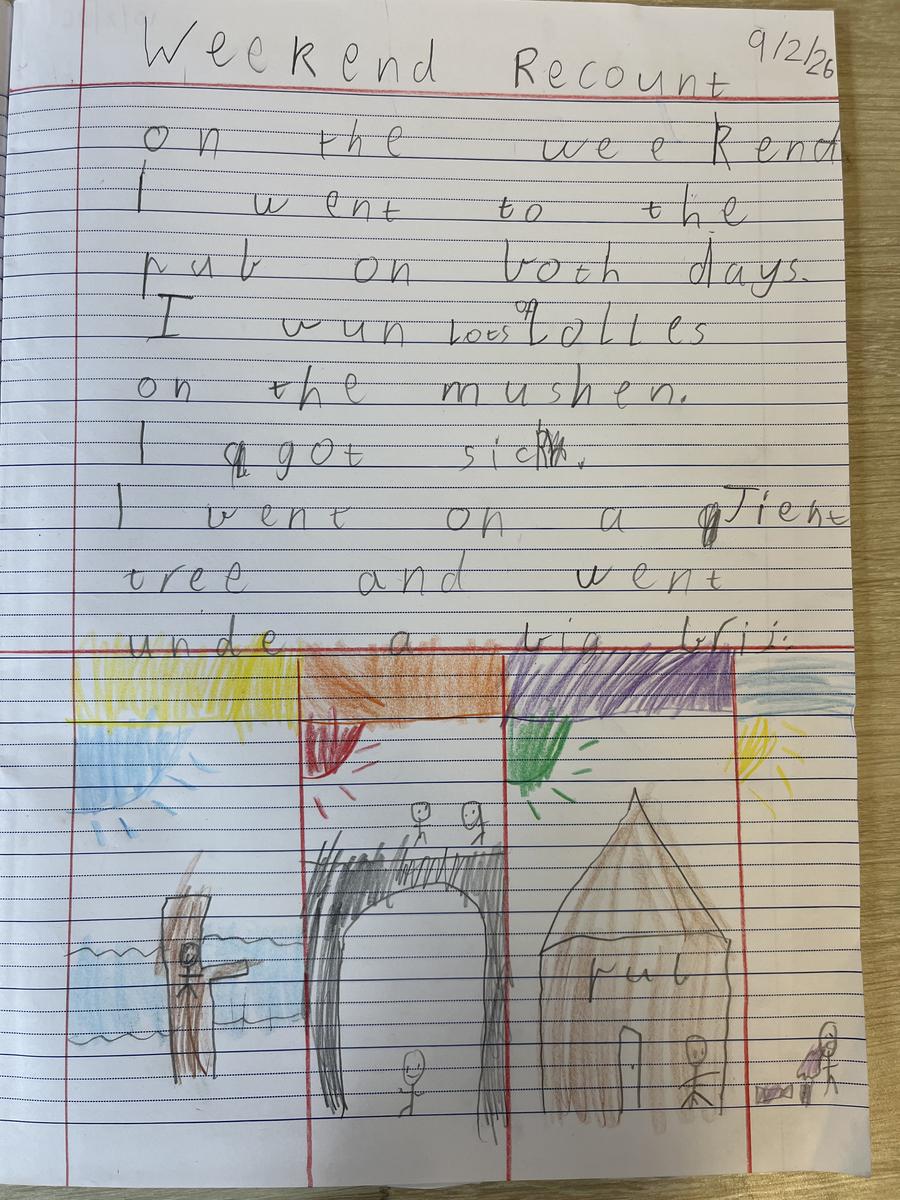 Weekend Recount 9/2/26
on the weekend
I went to the
pub on both days.
I wun Lots of Lolles
on the mushen.
I got sick.
I went on a Jient
tree and went
unde a big brij.
pub